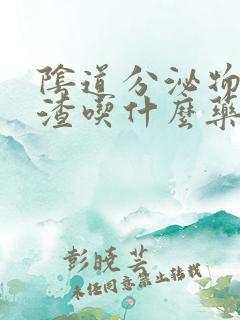 陰道分泌物
渣喫什麽藥
彭晓芸
未经同意禁止转载